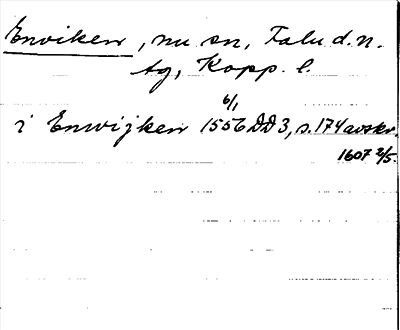 Enviken, nu sn, Falu d. n.
tg, Kopp. l.
6/1
i Enwijken 1556 DD 3, s. 174 avskr.
1607 2/5.